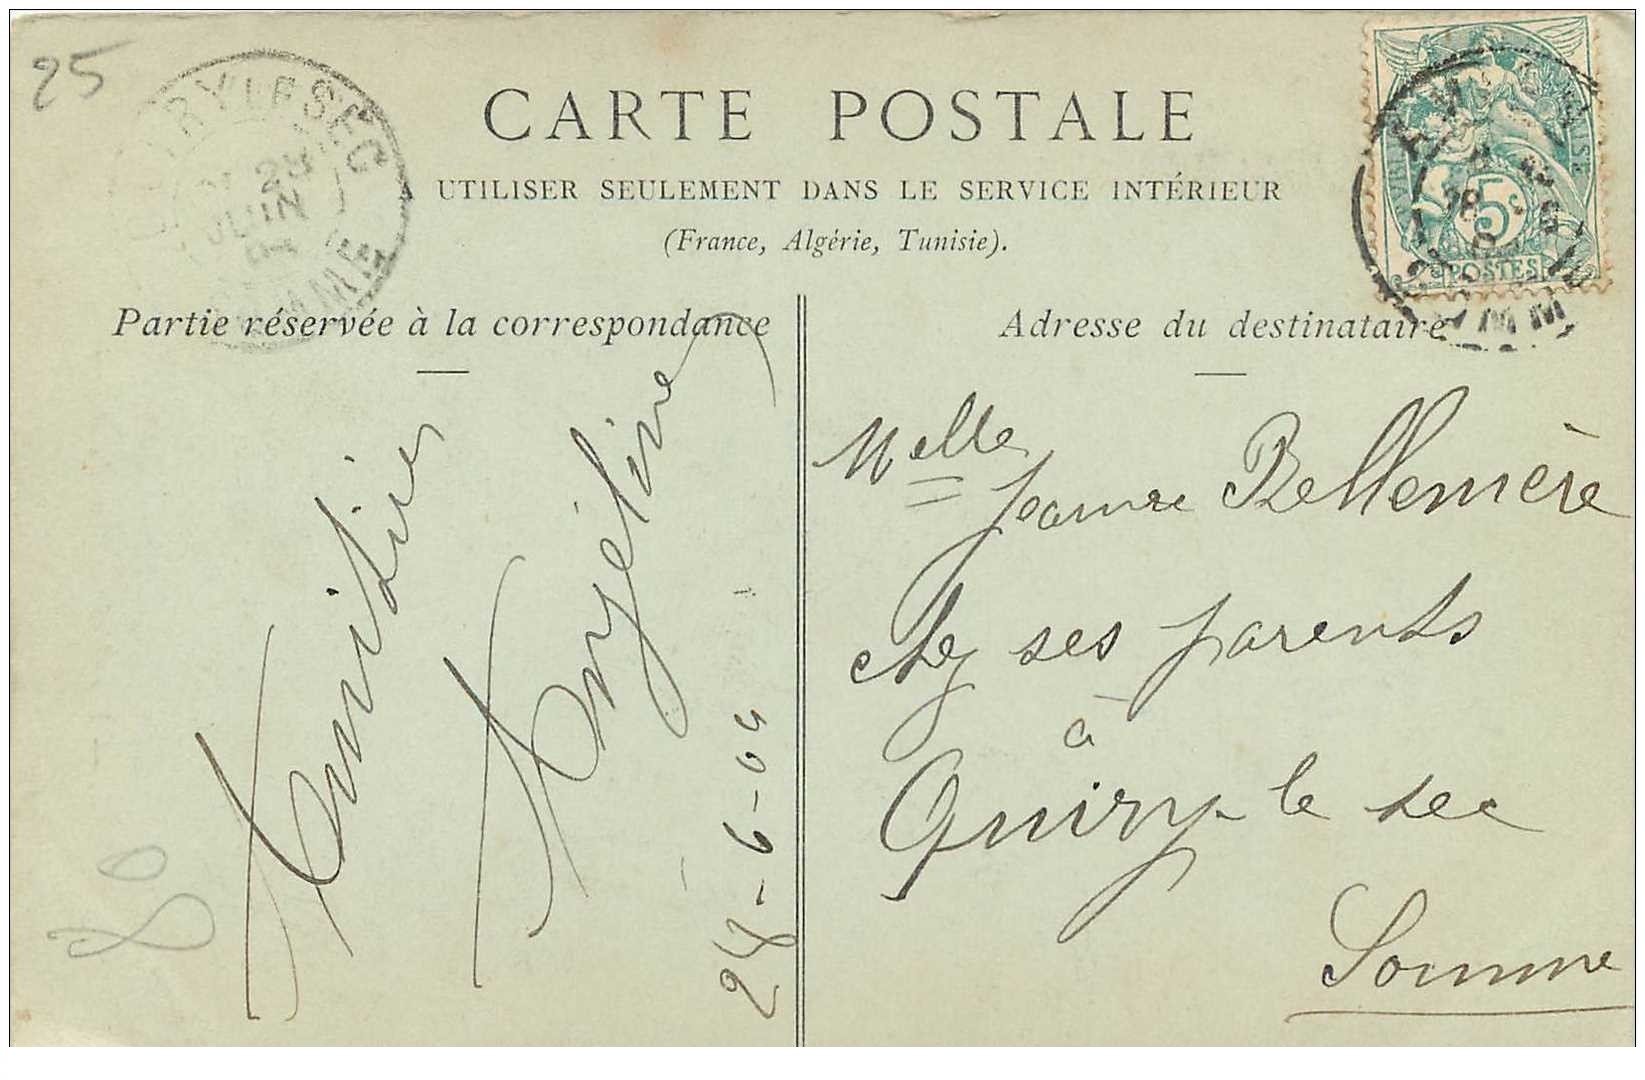 25
CARTE POSTALE
UTILISER SEULEMENT DANS LE SERVICE INTÉRIEUR
(France, Algérie, Tunisie).
Partie réservée à la correspondance
Amitiés
Angéline
28-6-04
80
Adresse du destinataire
Melle
Jeanne Bellemère
chez ses parents
à
Quiry-le sec
Somme
5c
POSTES
28
JUIN
04